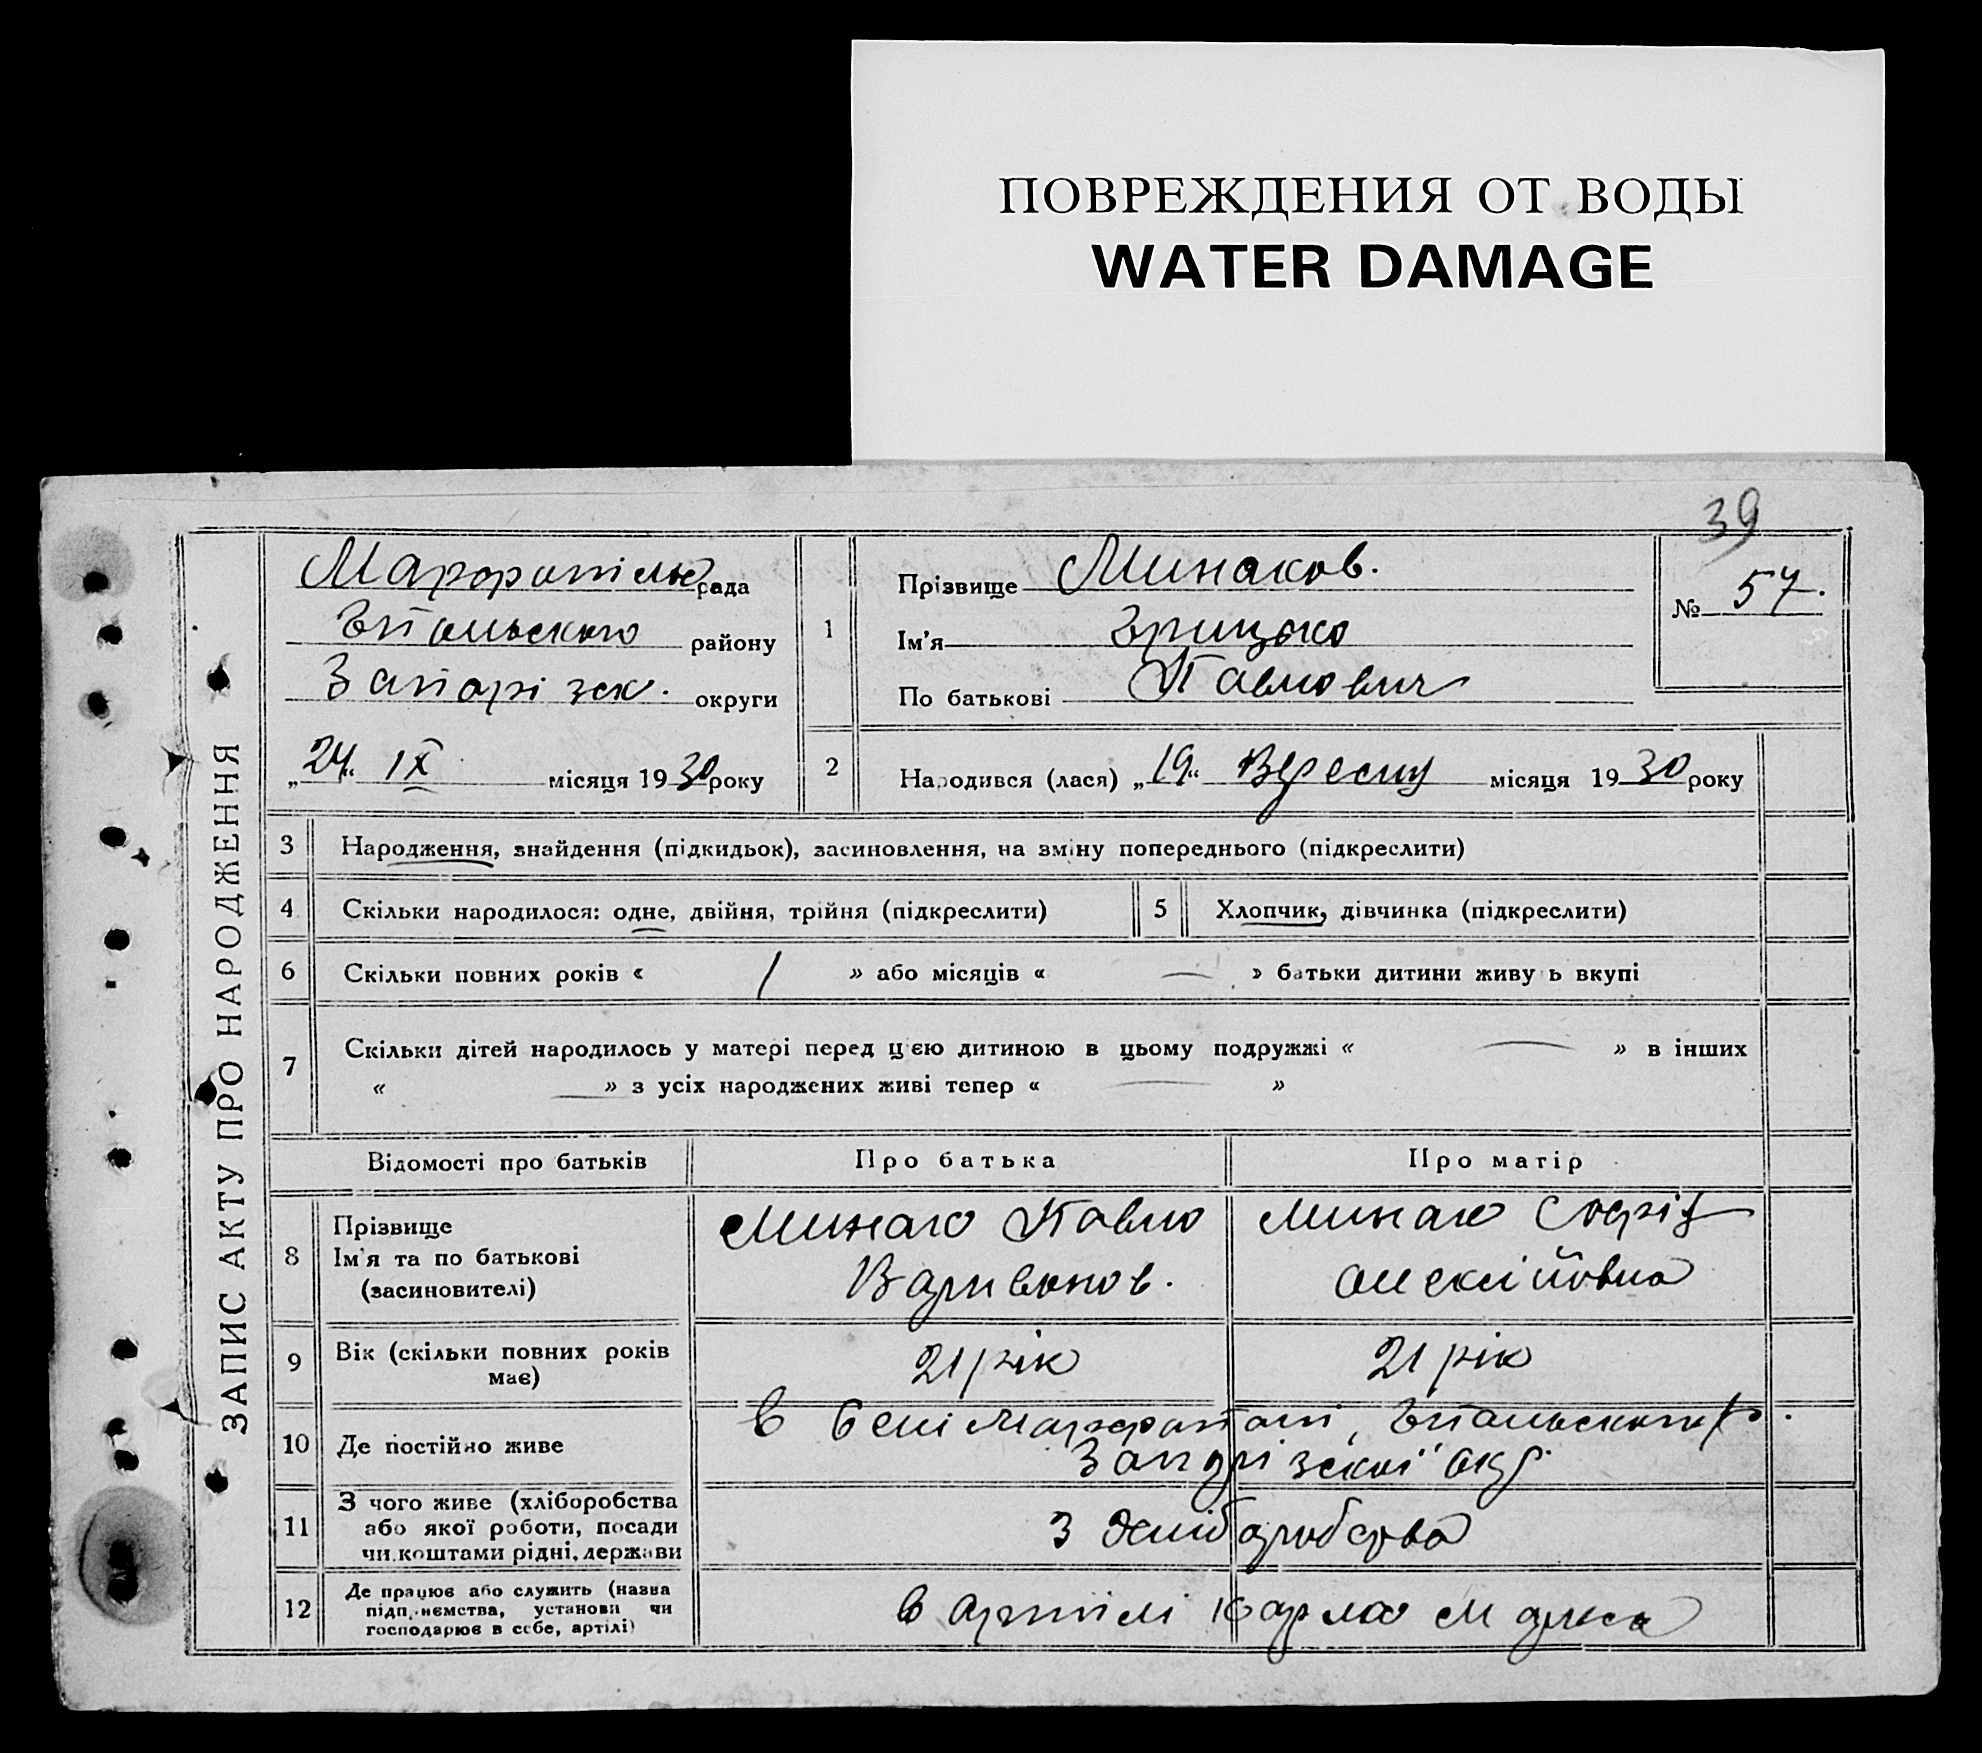 ПОВРЕЖДЕНИЯ ОТ ВОДЫ
WATER DAMAGE
39
ЗАПИС АКТУ ПРО НАРОДЖЕННЯ
Марфопільс рада
Гпільського району
Запорізьк. округи
„24“ IX місяця 1930 року
1 Прізвище Минаков.
Ім'я Грицько
По батькові Павлович
№ 57.
2 Народився (лася) „19“ Вересня місяця 1930 року
3 Народження, знайдення (підкидьок), засиновлення, на зміну попереднього (підкреслити)
4 Скільки народилося: одне, двійня, трійня (підкреслити) 5 Хлопчик, дівчинка (підкреслити)
6 Скільки повних років « 1 » або місяців « — » батьки дитини живуть вкупі
7 Скільки дітей народилось у матері перед цією дитиною в цьому подружжі « — » в інших
« — » з усіх народжених живі тепер « — »
Відомості про батьків Про батька Про матір
8 Прізвище
Ім'я та по батькові
(засиновителі)
Минако Павло
Варивонов.
Минако Софія
Олексіївна
9 Вік (скільки повних років
має)
21 рік
21 рік
10 Де постійно живе
в селі Марфополі,
Запорізької окр.
11 З чого живе (хліборобства
або якої роботи, посади
чи коштами рідні, держави
З хліборобства
12 Де працює або служить (назва
підприємства, установи чи
господарює в себе, артілі)
в артілі Карла Маркса